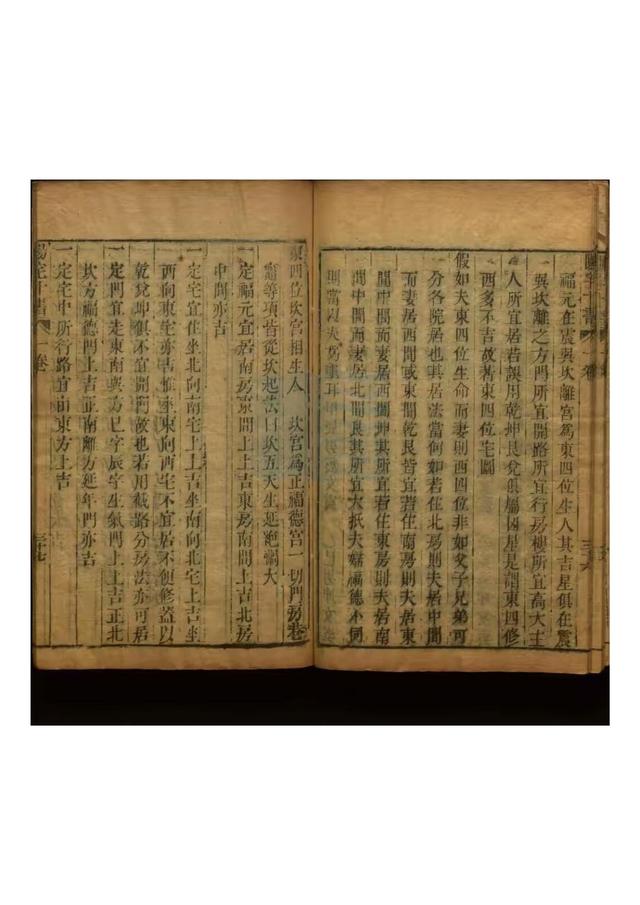 福元在震巽坎離宮為東四位生人其吉星俱在震
巽坎離之方門所宜開路所宜行房樓所宜高大主
人所宜居若誤用乾坤艮兌俱屬凶星是謂東四修
西多不吉故著東四位宅圖
假如夫東四位生命而妻則西四位非如父子兄弟可
分各院居也其居法當何如若住北房則夫居中間
而妻居西間或東間乾艮皆宜若住南房則夫居東
間中間而妻居西間坤其所宜若住東房則夫居南
間中間而妻居北間艮其所宜大抵夫婦福德不同
則當以夫為事耳
三十六
東四位坎宮相生人 坎宮為正福德宮一切門房巷
竈等項皆從坎起法曰坎五天生延絕禍六
一定福元宜居南房東間上上吉東房南間上吉北房
中間亦吉
一定宅宜住坐北向南宅上上吉坐南向北宅上吉坐
西向東宅亦吉惟坐東向西宅不宜居不便修蓋以
乾兌坤俱不宜開門故也若用截路分房法亦可居
一定門宜走東南巽方巳字辰字生氣門上上吉正北
坎方福德門上吉正南離方延年門亦吉
一定宅中所行路宜由東方上吉
陽宅十書 一卷 三十七